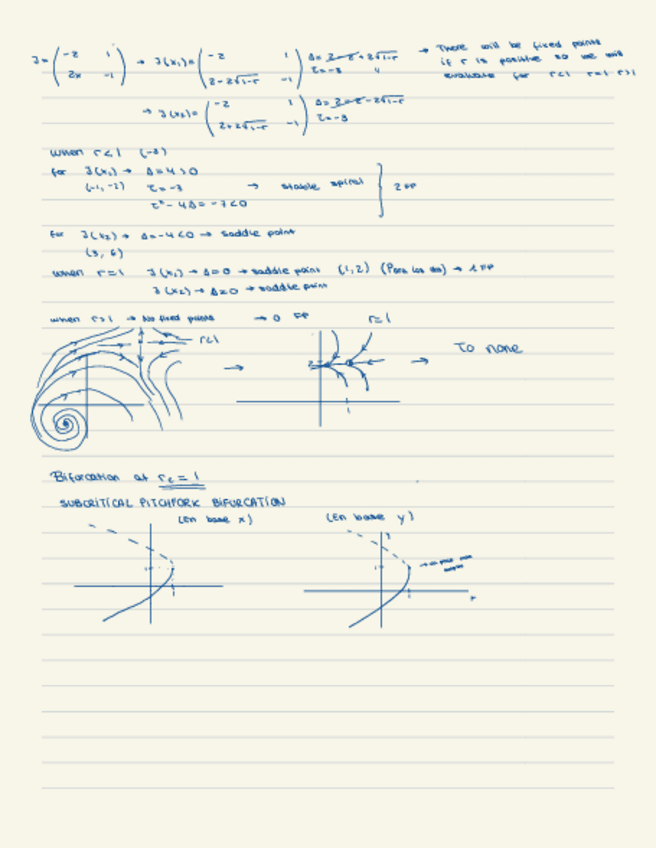 J = ( -2 1 ; 2x -1 ) → J(x₁) = ( -2 1 ; 2-2√1-r -1 ) Δ= 2-2+2√1-r τ=-3 → There will be fixed points
if r is positive so we will
evaluate for r<1 r=1 r>1
→ J(x₂) = ( -2 1 ; 2+2√1-r -1 ) Δ= 2-2-2√1-r τ=-3
when r<1 (-3)
for J(x₁) → Δ=4>0
(-1,-2) τ=-3 → stable spiral } 2 FP
τ²-4Δ=-7<0
for J(x₂) → Δ=-4<0 → saddle point
(3, 6)
when r=1 J(x₁) → Δ=0 → saddle point (1,2) (Para los dos) → 1 FP
J(x₂) → Δ=0 → saddle point
when r>1 → No fixed points → 0 FP r=1
r<1
→ → To none
2
1
Bifurcation at r_c = 1
SUBCRITICAL PITCHFORK BIFURCATION
(En base x) (En base y)
y
r